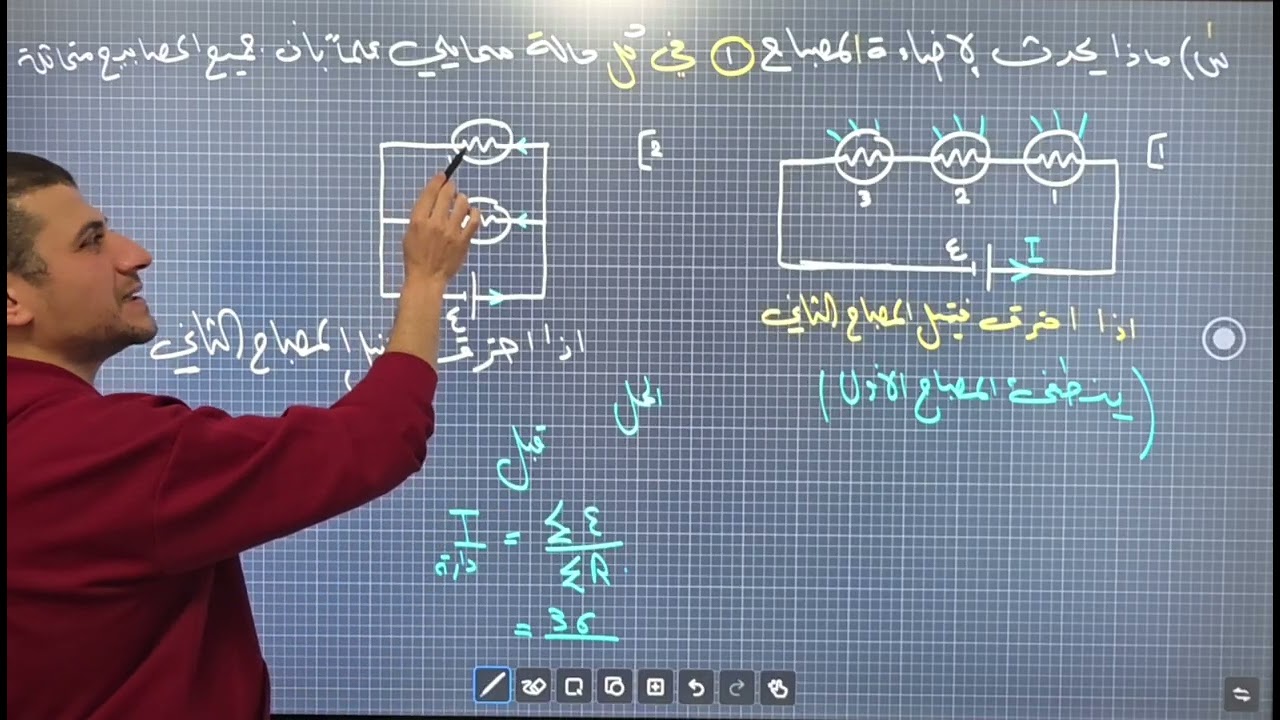 س١) ماذا يحدث لإضاءة المصباح ① في كل حالة ممايلي علماً بأن جميع المصابيح متماثلة
1]
3 2 1
ε I
اذا احترق فتيل المصباح الثاني
(ينطفئ المصباح الأول)
2]
ε
اذا احترق المصباح الثاني
الحل
قبل
I دارة = Σε / ΣR
=